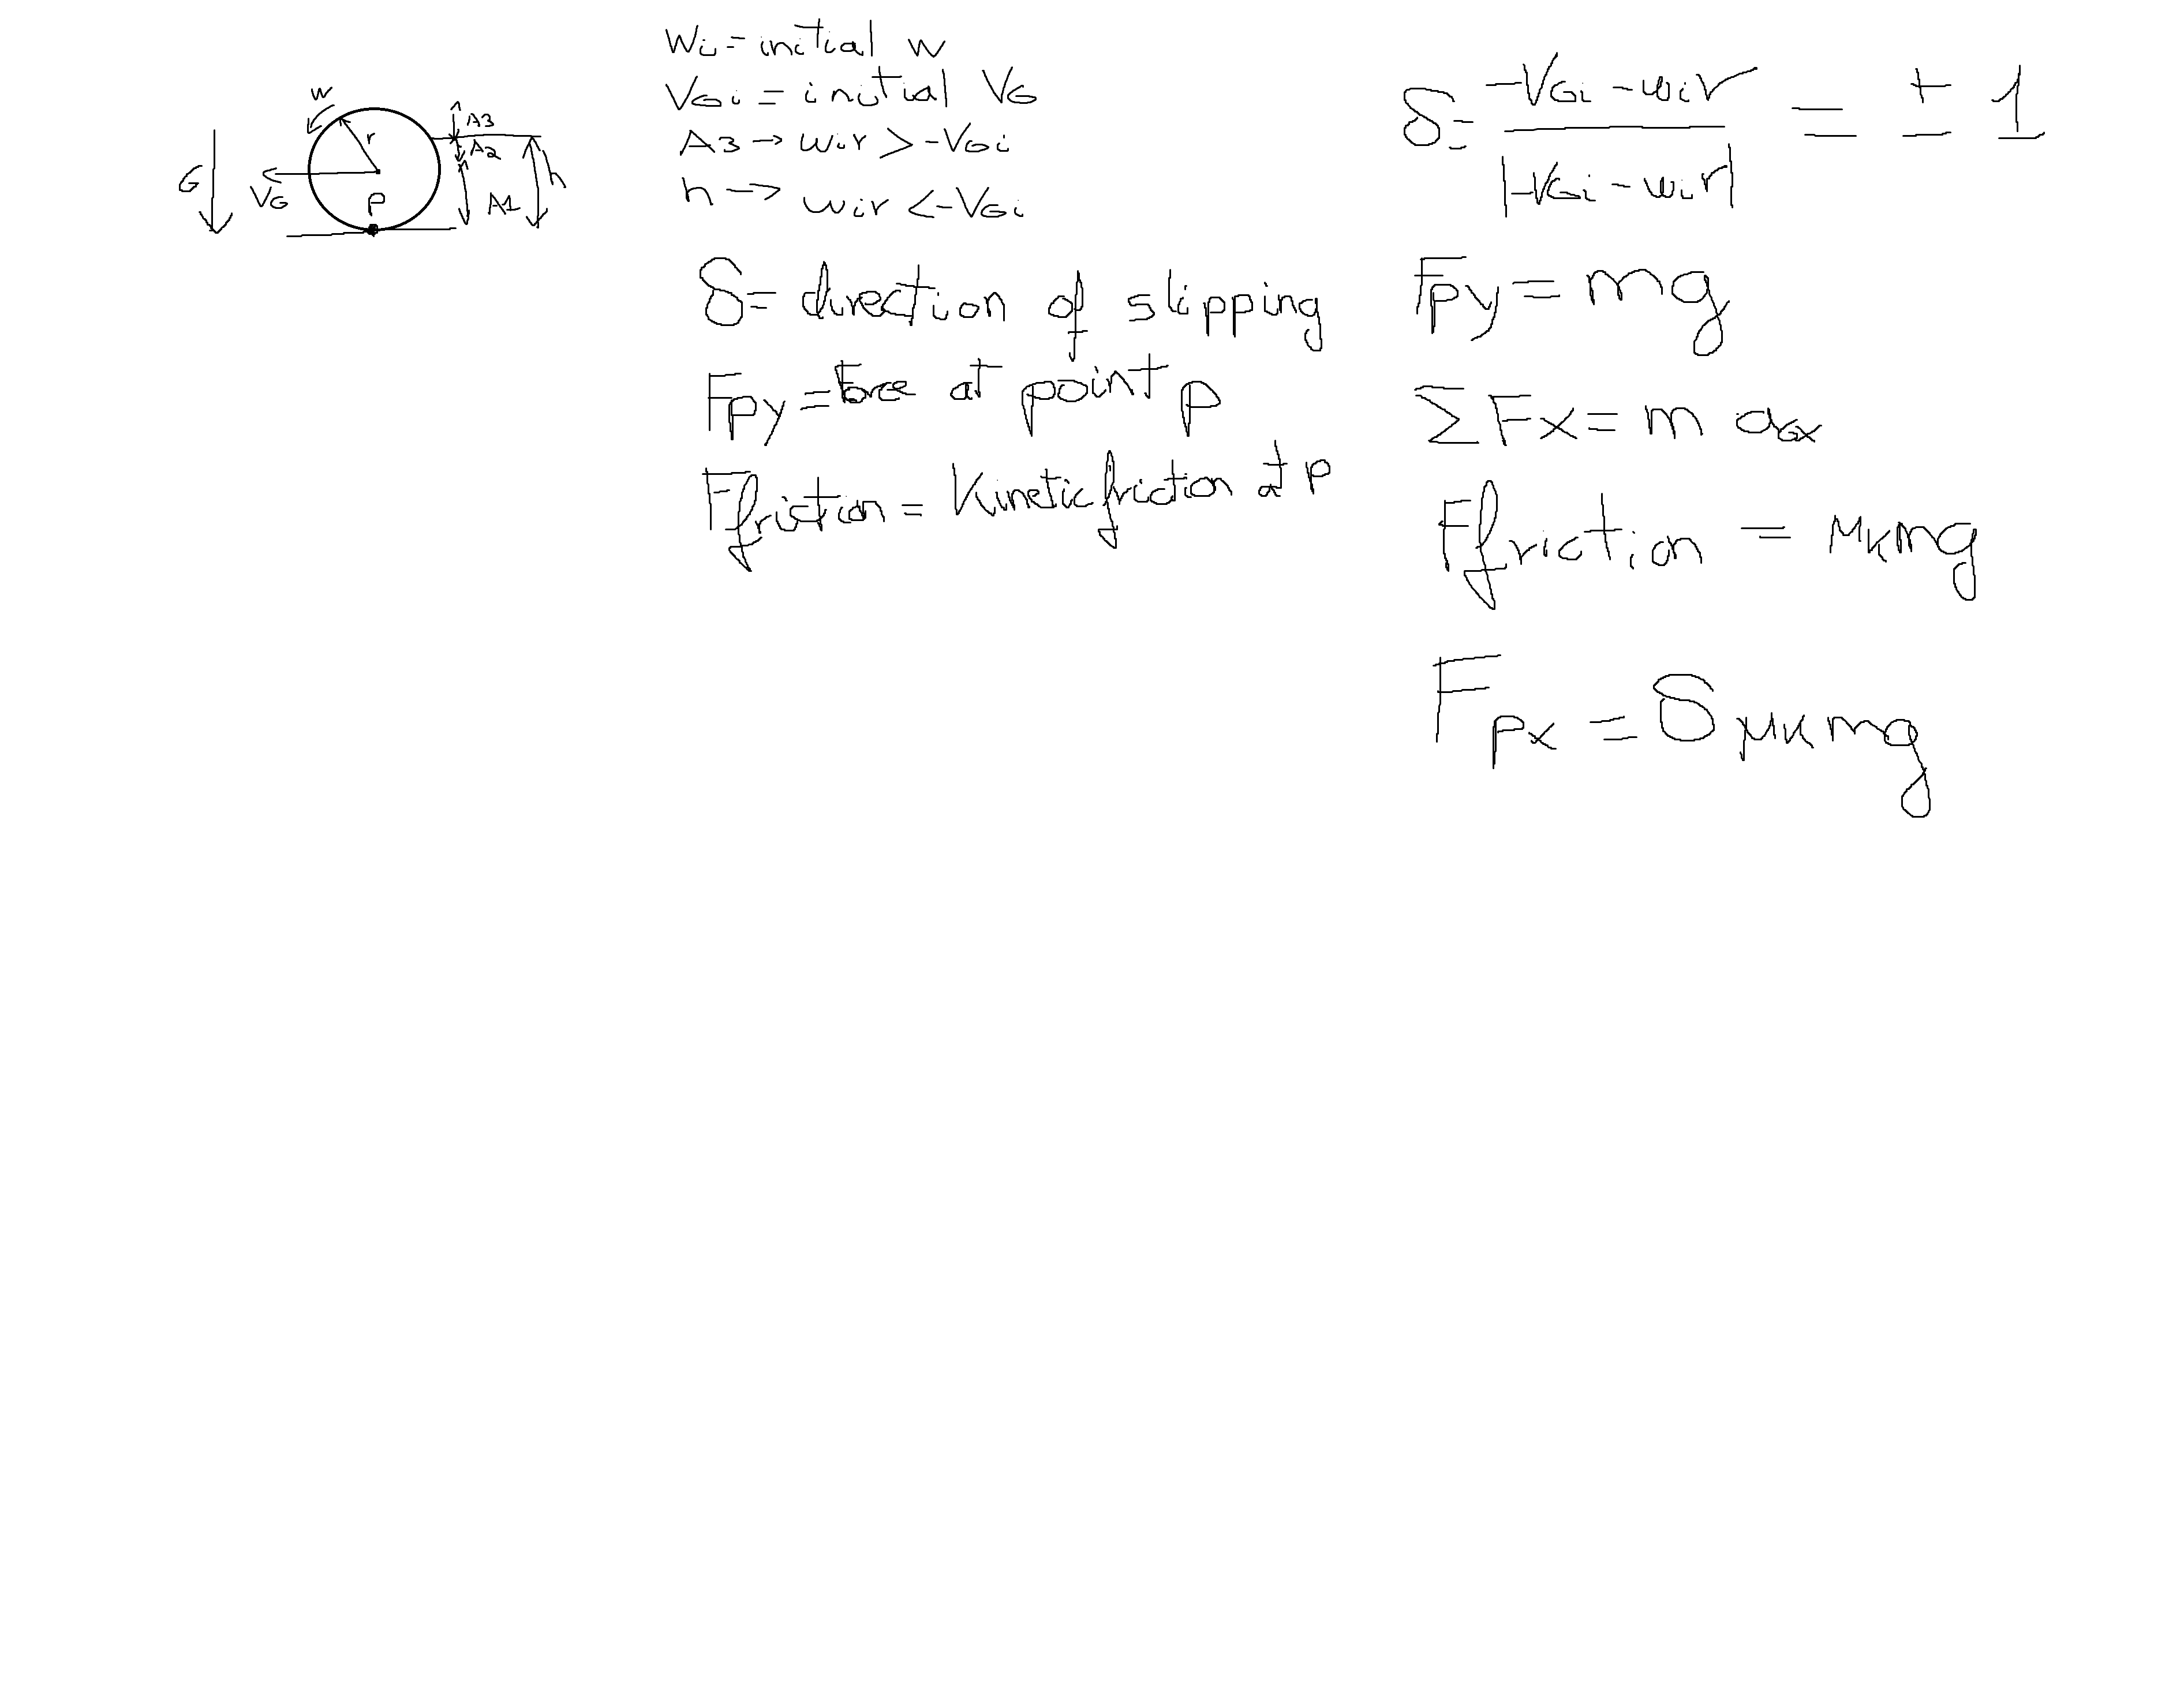 w
r
G
VG
P
A3
A2
A1
h
Wi = initial w
VGi = initial VG
A3 → wir > -VGi
h → wir < -VGi
δ = direction of slipping
Fpy = force at point p
Ffriction = Kinetic friction at P
δ = -VGi - wir / |-VGi - wir| = ± 1
Fpy = mg
ΣFx = m aGx
Ffriction = μkmg
Fpx = δ μk mg